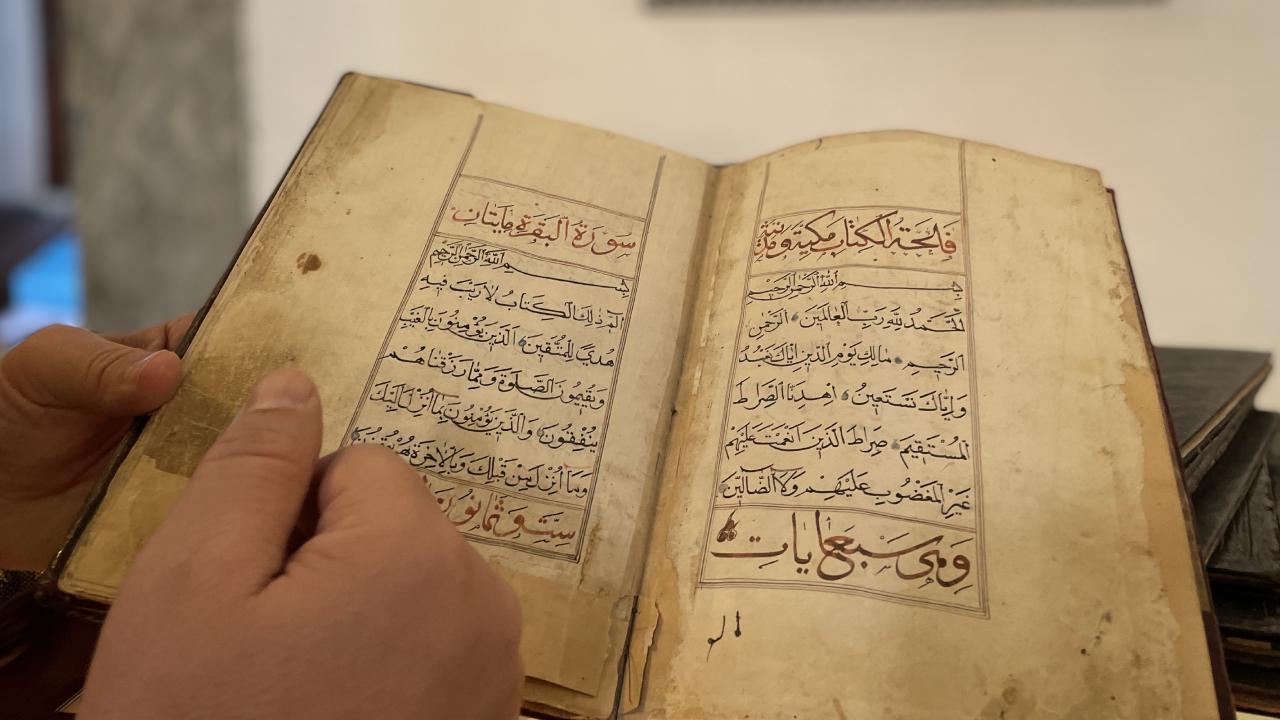 فاتحة الكتاب مكية ومدنية
بسم الله الرحمن الرحيم
الحَمدُ لِلّهِ رَبِّ العالَمينَ الرَحمنِ
الرَحيمِ مالِكِ يَومِ الدينِ إيّاكَ نَعبُدُ
وَإيّاكَ نَستَعينُ اِهدِنا الصِراطَ
المُستَقيمَ صِراطَ الَّذينَ أنعَمتَ عَلَيهِم
غَيرِ المَغضُوبِ عَلَيهِم وَلا الضالّينَ
وهي سبع ايات
الم
سورة البقرة مايتان
بسم الله الرحمن الرحيم
الم ذلِكَ الكِتابُ لا رَيبَ فيهِ
هُدىً لِلمُتَّقينَ الَّذينَ يُؤمِنُونَ بِالغَيبِ
وَيُقيمُونَ الصَّلوةَ وَمِمّا رَزَقناهُم
يُنفِقُونَ وَالَّذينَ يُؤمِنُونَ بِما أُنزِلَ إلَيكَ
وَما أُنزِلَ مِن قَبلِكَ وَبِالآخِرَةِ هُم يُوقِنُونَ
ست وثمانون